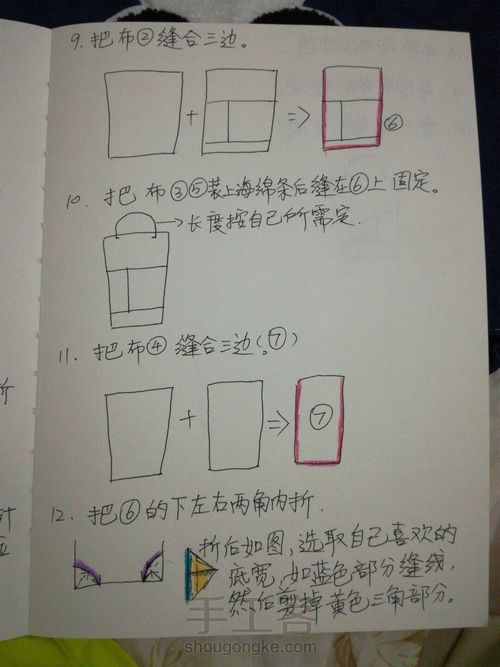 9. 把布②缝合三边。
+
=>
⑥
10. 把布③⑤装上海绵条后缝在⑥上固定。
→长度按自己所需定.
11. 把布④缝合三边(。⑦)
+
=>
⑦
12. 把⑥的下左右两角内折.
折后如图,选取自己喜欢的
底宽,如蓝色部分缝线,
然后剪掉黄色三角部分。
手工客
shougongke.com
折